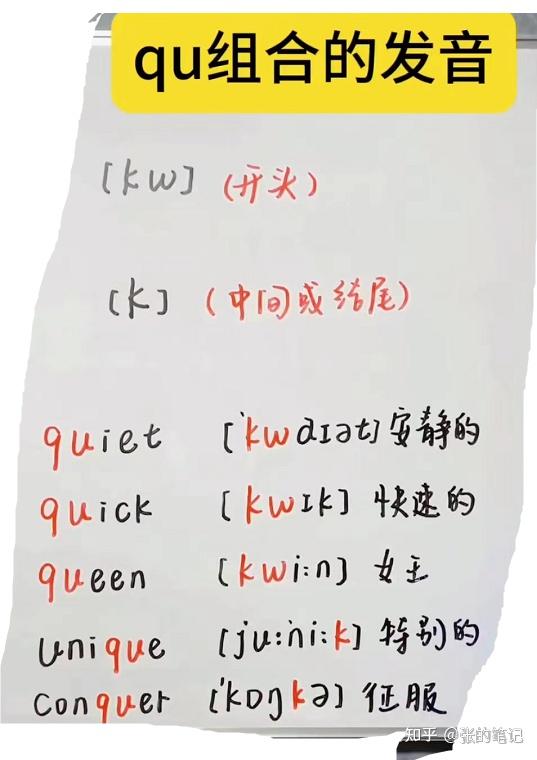 qu组合的发音
[kw] (开头)
[k] (中间或结尾)
quiet ['kwaɪət] 安静的
quick [kwɪk] 快速的
queen [kwi:n] 女王
unique [ju:'ni:k] 特别的
conquer ['kɒŋkə] 征服
知乎 @张的笔记